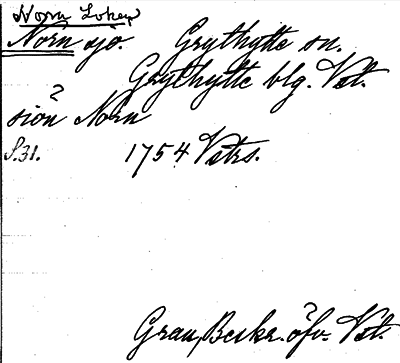 Norra Loken
Norn sjö. Grythytte sn.
Grythytte blg. Vst.
?
siön Norn
S.31. 1754 Vstrs.
Grau, Beskr. öfv. Vst.